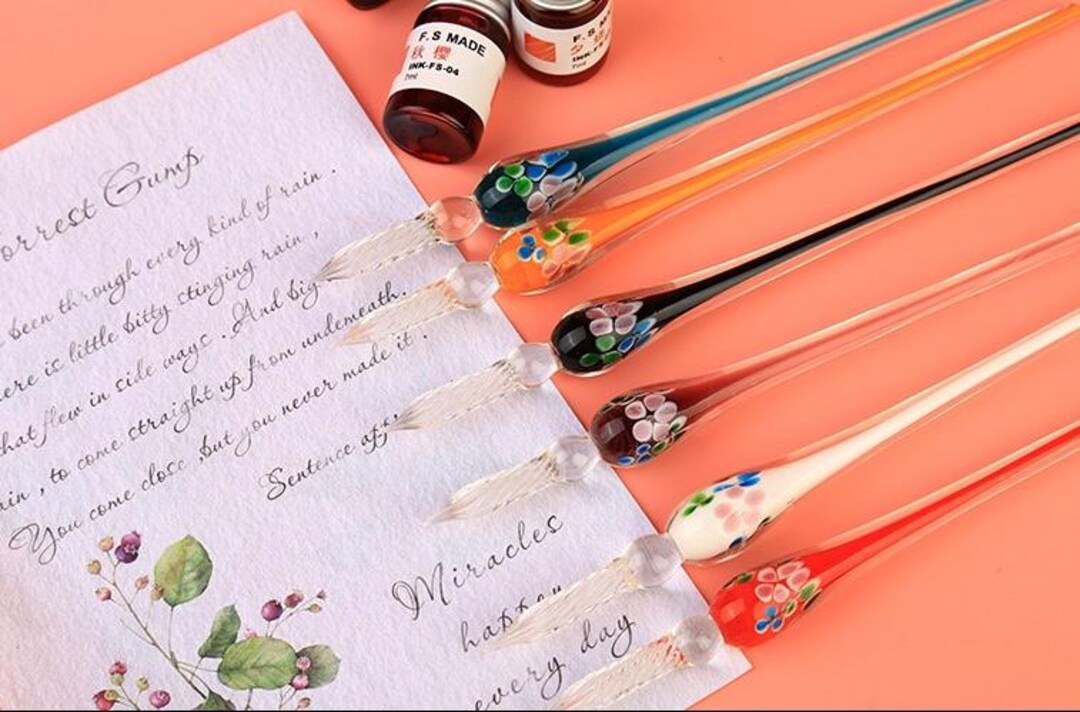 F.S MADE
秋樱
INK-FS-04
7ml
F.S M
INK-FS
7ml
orrest Gump
been through every kind of rain .
ere is little bitty stinging rain ,
hat flew in side ways . And big
ain , to come straight up from underneath.
You come close ,but you never made it .
Sentence
Miracles
happen
every day